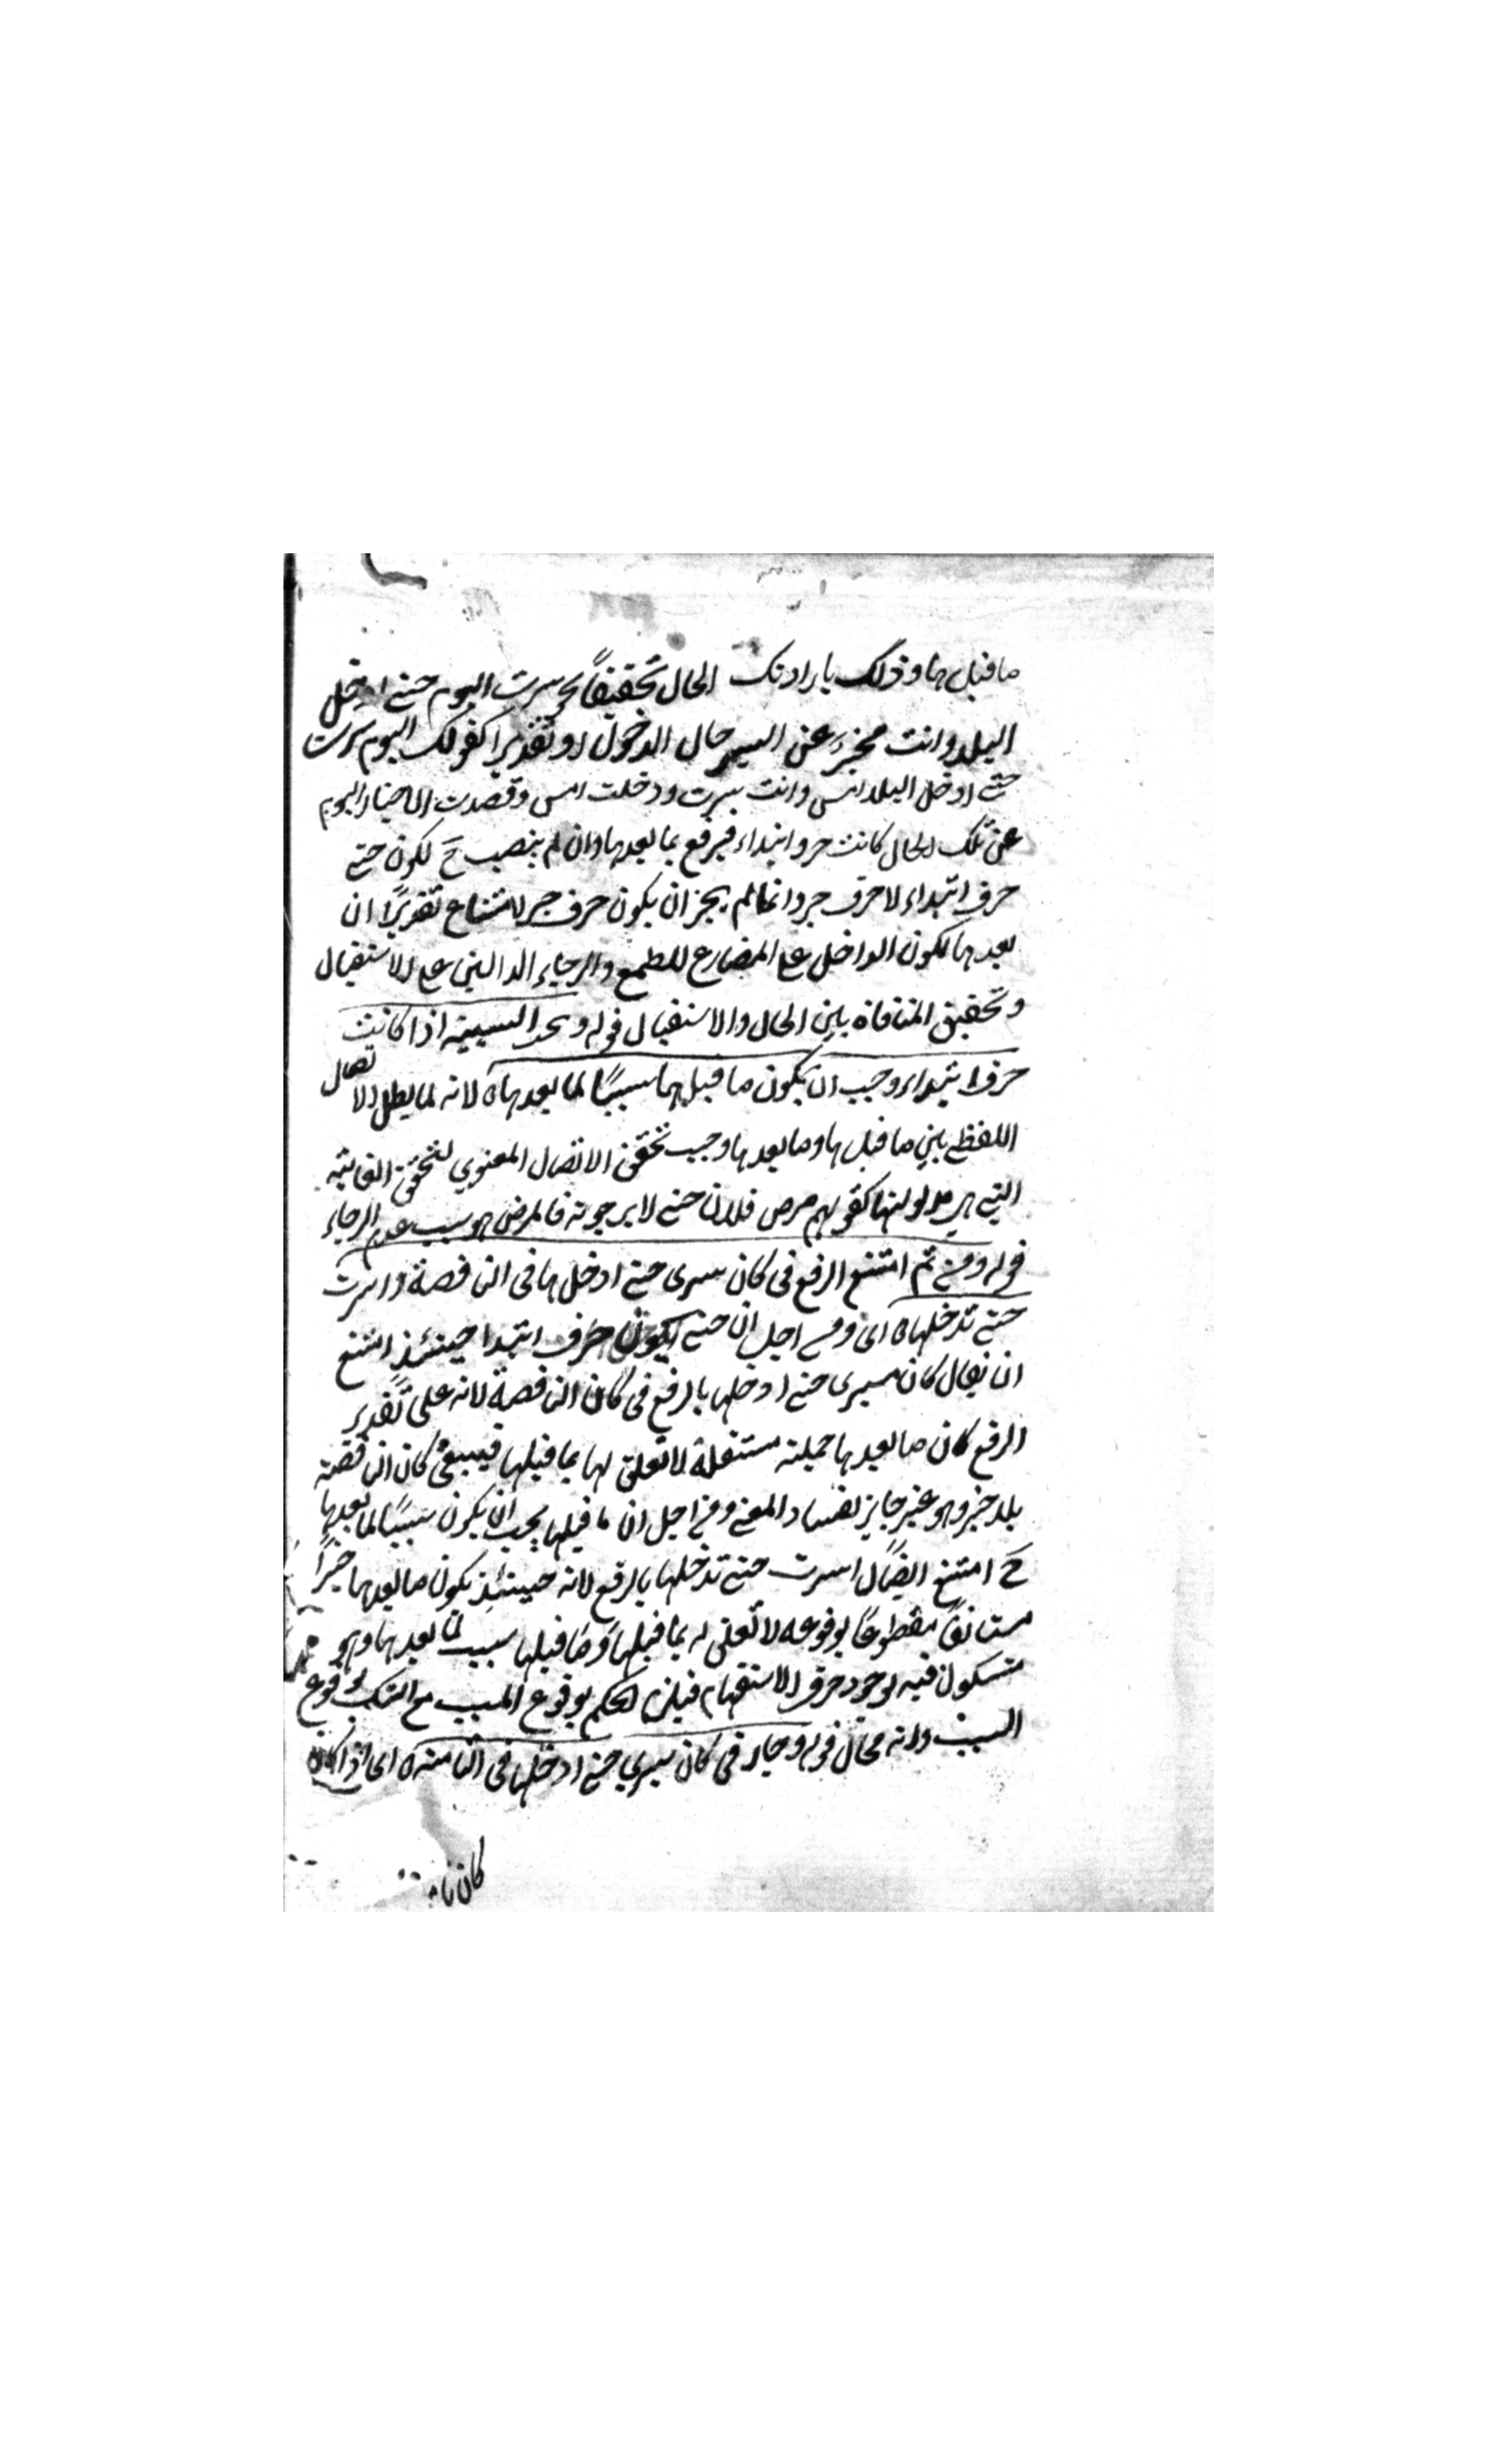 ما قبلها وذلك بارادتك الحال تحقيقاً نحو سرت اليوم حتى ادخل
البلد وانت مخبر عن السير حال الدخول او تقديرا كقولك اليوم سرت
حتى ادخل البلد امس وانت سرت ودخلت امس وقصدت الاخبار اليوم
عن تلك الحال كانت حرف ابتداء فيرفع ما بعدها وان لم ينصب ح لكون حتى
حرف ابتداء لا حرف جر وانما لم يجز ان يكون حرف جر لامتناع تقدير ان
بعدها لكون الداخل على المضارع للطمع والرجاء الدالين على الاستقبال
وتحقيق المنافاة بين الحال والاستقبال قوله وتجب السببية اذا كانت
حرف ابتداء وجب ان يكون ما قبلها سببًا لما بعدها لانه لما بطل الاتصال
اللفظ بين ما قبلها وما بعدها وجب تحقق الاتصال المعنوي لتحقق الغاية
التي هي مدلولتها كقولهم مرض فلان حتى لا يرجونه فالمرض هو سبب عدم الرجاء
قوله ومن ثم امتنع الرفع في كان سيرى حتى ادخلها في الناقصة واسرت
حتى تدخلها اى ومن اجل ان حتى يكون حرف ابتدا حينئذ امتنع
ان يقال كان سيرى حتى ادخلها بالرفع في كان الناقصة لانه على تقدير
الرفع كان ما بعدها جملة مستقلة لا تعلق لها بما قبلها فيبقى كان الناقصة
بلا خبر وهو غير جايز لفساد المعنى ومن اجل ان ما قبلها يجب ان يكون سببًا لما بعدها
ح امتنع ايضًا اسرت حتى تدخلها بالرفع لانه حينئذ يكون ما بعدها خبرًا
مستانفًا مقطوعًا بوقوعه لا تعلق له بما قبلها وما قبلها سبب لما بعدها وهو
مشكوك فيه لوجود حرف الاستفهام فيلزم الحكم بوقوع المسبب مع الشك بوقوع
السبب وانه محال قوله وجاز في كان سيري حتى ادخلها في التامة اى اذا كان
كان تامة